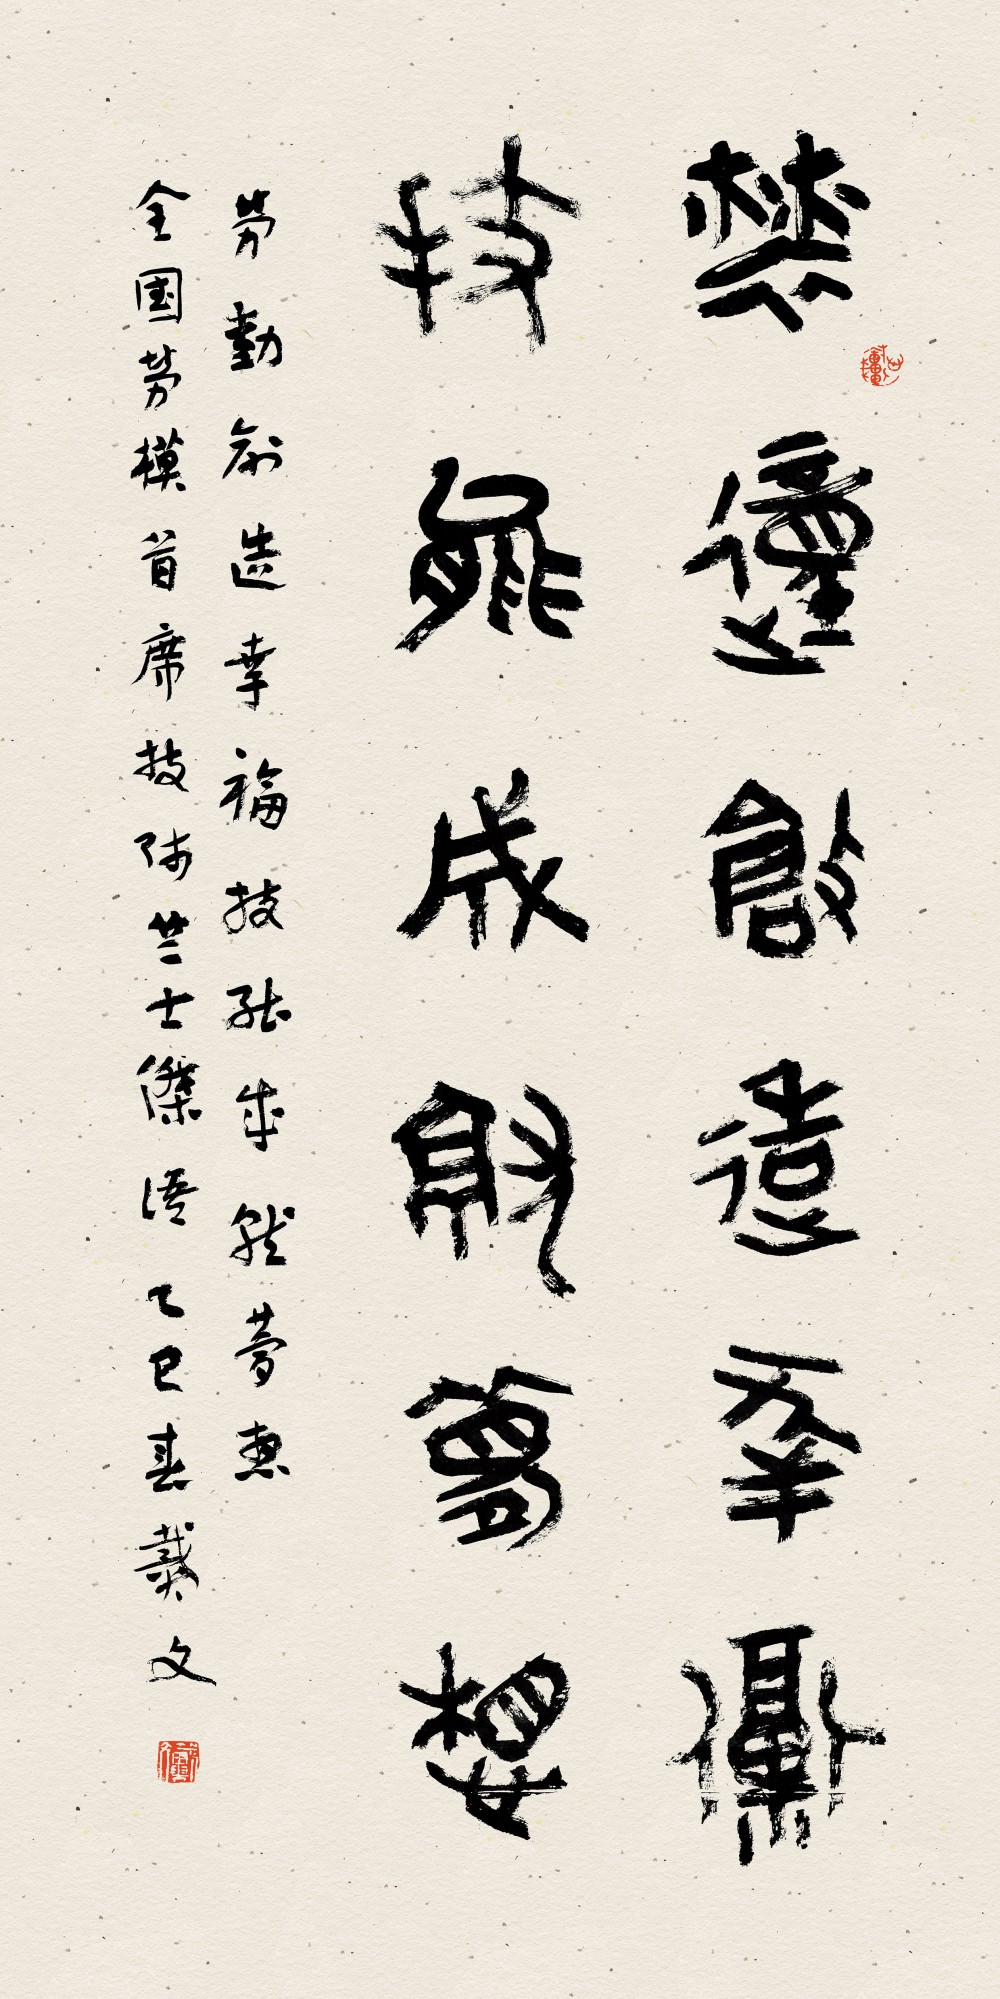 勞動創造幸福
技能成就夢想
劳動創造幸福技能成就夢想
全国劳模首席技師竺士傑語乙巳春戴文